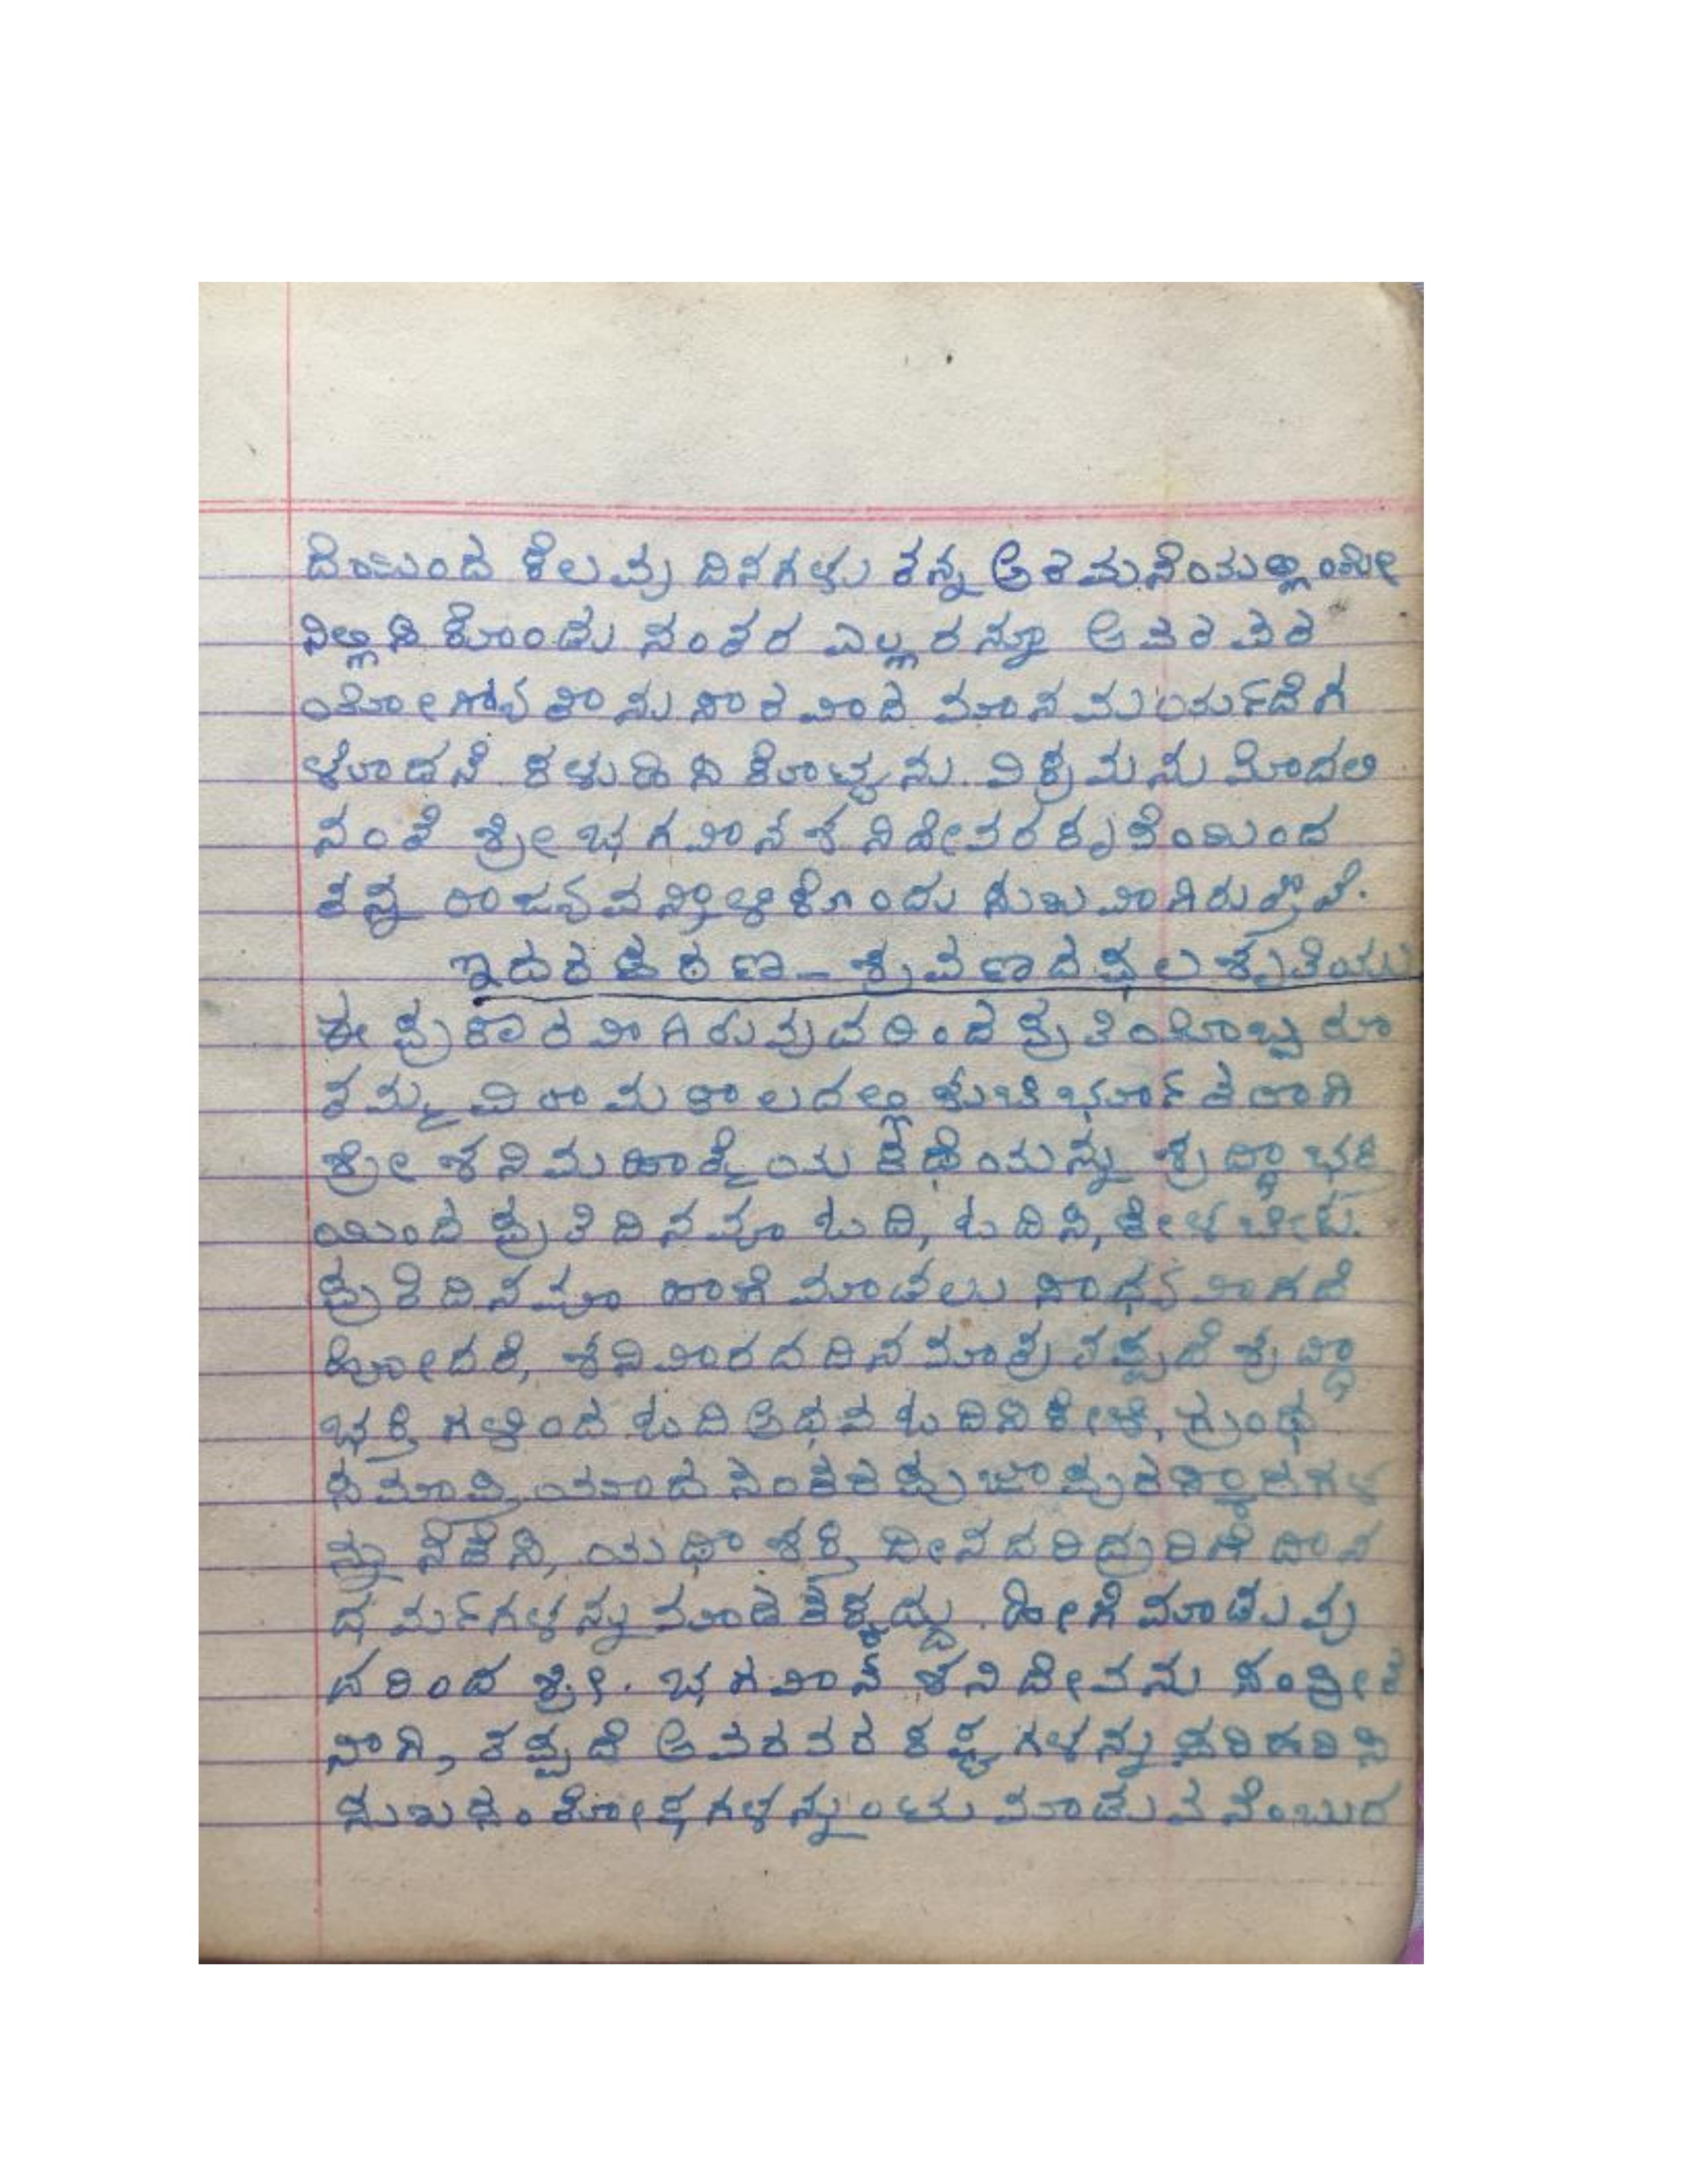 ದೆಯಿಂದ ಕೆಲವು ದಿನಗಳು ತನ್ನ ಅರಮನೆಯಲ್ಲಿಯೇ
ನಿಲ್ಲಿಸಿಕೊಂಡು ನಂತರ ಎಲ್ಲರನ್ನೂ ಅವರವರ
ಯೋಗ್ಯತಾನುಸಾರವಾದ ಮಾನಮರ್ಯಾದೆಗ
ಳೊಡನೆ ಕಳುಹಿಸಿಕೊಟ್ಟನು. ವಿಕ್ರಮನು ಮೊದಲಿ
ನಂತೆ ಶ್ರೀ ಭಗವಾನ ಶನಿದೇವರ ಕೃಪೆಯಿಂದ
ತನ್ನ ರಾಜ್ಯವನ್ನಾಳಿಕೊಂಡು ಸುಖವಾಗಿರುತ್ತಾನೆ.
ಇದರ ಪಠಣ - ಶ್ರವಣಾದ ಫಲಶ್ರುತಿಯು
ಈ ಪ್ರಕಾರವಾಗಿರುವುದರಿಂದ ಪ್ರತಿಯೊಬ್ಬರೂ
ತಮ್ಮ ವಿರಾಮಕಾಲದಲ್ಲಿ ಶುಚಿರ್ಭೂತರಾಗಿ
ಶ್ರೀ ಶನಿಮಹಾತ್ಮೆಯ ಕಥೆಯನ್ನು ಶ್ರದ್ಧಾಭಕ್ತಿ
ಯಿಂದ ಪ್ರತಿದಿನವೂ ಓದಿ, ಓದಿಸಿ, ಕೇಳಬೇಕು.
ಪ್ರತಿದಿನವೂ ಹಾಗೆ ಮಾಡಲು ಸಾಧ್ಯವಾಗದೆ
ಹೋದರೆ, ಶನಿವಾರದ ದಿನ ಮಾತ್ರ ತಪ್ಪದೆ ಶ್ರದ್ಧಾ
ಭಕ್ತಿಗಳಿಂದ ಓದಿ ಅಥವ ಓದಿಸಿ ಕೇಳಿ, ಗ್ರಂಥ
ಸಮಾಪ್ತಿಯಾದ ನಂತರ ಪೂಜಾಪುರಸ್ಕಾರಗಳ
ನ್ನು ನೆಡೆಸಿ, ಯಥಾಶಕ್ತಿ ದೀನದರಿದ್ರರಿಗೆ ದಾನ
ಧರ್ಮಗಳನ್ನು ಮಾಡತಕ್ಕದ್ದು. ಹೀಗೆ ಮಾಡುವು
ದರಿಂದ ಶ್ರೀ. ಭಗವಾನ್ ಶನಿದೇವನು ಸಂಪ್ರೀತ
ನಾಗಿ, ತಪ್ಪದೆ ಅವರವರ ಕಷ್ಟಗಳನ್ನು ಪರಿಹರಿಸಿ
ಸುಖಸಂತೋಷಗಳನ್ನುಂಟು ಮಾಡುವನೆಂಬುದ